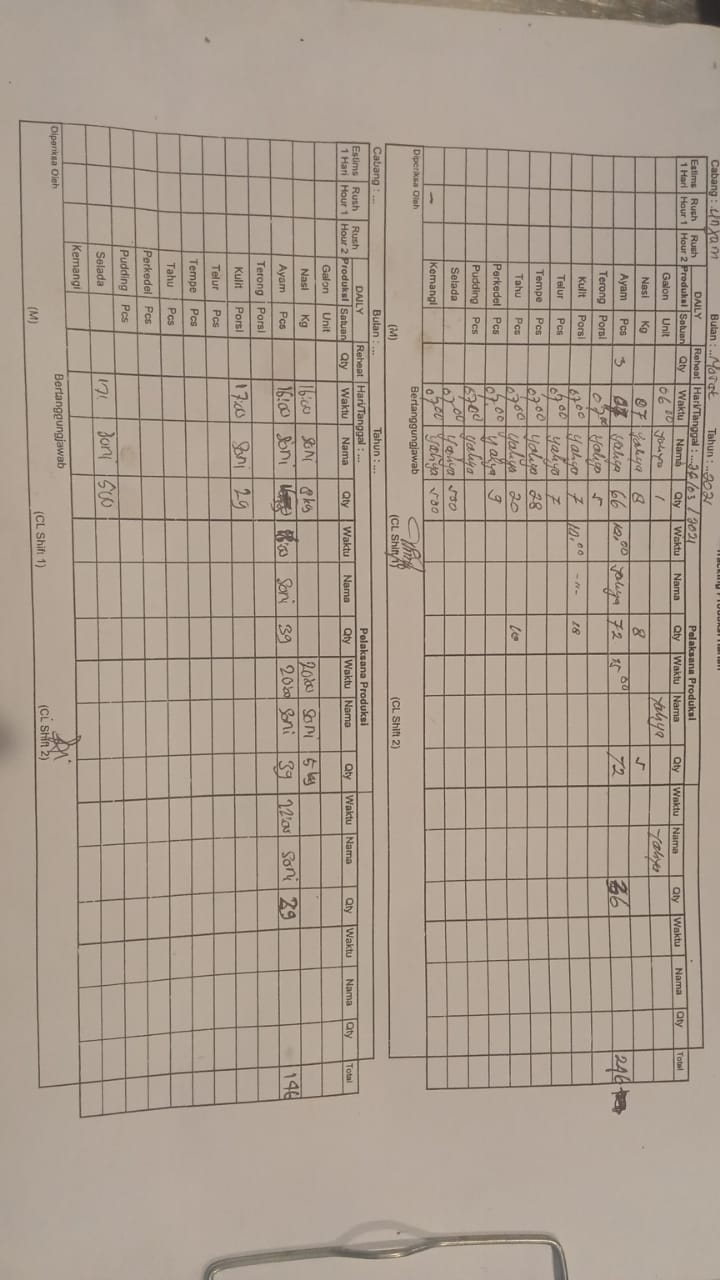 Cabang : Unram Bulan : ..Maret Tahun : ..2021
Estims 1 Hari Rush Hour 1 Rush Hour 2 DAILY Produksi Satuan Reheat Qty Hari/Tanggal : .. /03/2021 Pelaksana Produksi Total
Waktu Nama Qty Waktu Nama Qty Waktu Nama Qty Waktu Nama Qty Waktu Nama Qty
Galon Unit 06.00 Yahya 1 Yahya Yahya
Nasi Kg 07 Yahya 8 8 5
Ayam Pcs 3 07 Yahya 66 10.00 Yahya 72 15.00 72 36 246
Terong Porsi 07.00 Yahya 5
Kulit Porsi 07.00 Yahya 7 10.00 -"- 18
Telur Pcs 07.00 Yahya 7
Tempe Pcs 07.00 Yahya 28
Tahu Pcs 07.00 Yahya 20 10
Perkedel Pcs 07.00 Yahya 9
Pudding Pcs 07.00 Yahya
Selada 07.00 Yahya 500
– Kemangi 07.00 Yahya 500
Diperiksa Oleh Bertanggungjawab
(M) (CL Shift 1) (CL Shift 2)
Cabang : ... Bulan : ... Tahun : ...
Estims 1 Hari Rush Hour 1 Rush Hour 2 DAILY Produksi Satuan Reheat Qty Hari/Tanggal : ... Pelaksana Produksi Total
Waktu Nama Qty Waktu Nama Qty Waktu Nama Qty Waktu Nama Qty Waktu Nama Qty
Galon Unit
Nasi Kg 16:00 Soni 8 kg 20:00 Soni 5 kg
Ayam Pcs 16:00 Soni Soni 39 20:00 Soni 39 22:00 Soni 29 146
Terong Porsi
Kulit Porsi 17:00 Soni 29
Telur Pcs
Tempe Pcs
Tahu Pcs
Perkedel Pcs
Pudding Pcs
Selada Soni 500
Kemangi
Diperiksa Oleh Bertanggungjawab
(M) (CL Shift 1) (CL Shift 2)